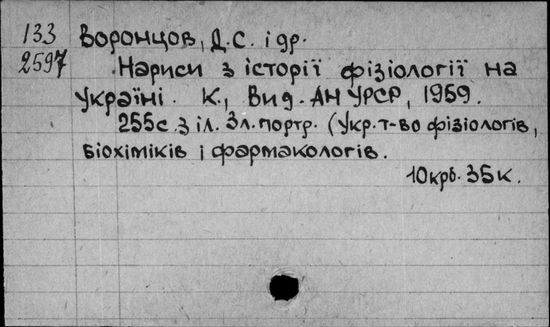 133 Воронцов, Д.С. і др.
2597 Нариси з історії фізіології на
Україні. К., Вид. АН УРСР, 1959.
255с. з іл. 3л. портр. (Укр. т-во фізіологів,
біохіміків і фармакологів.
10крб. 35к.